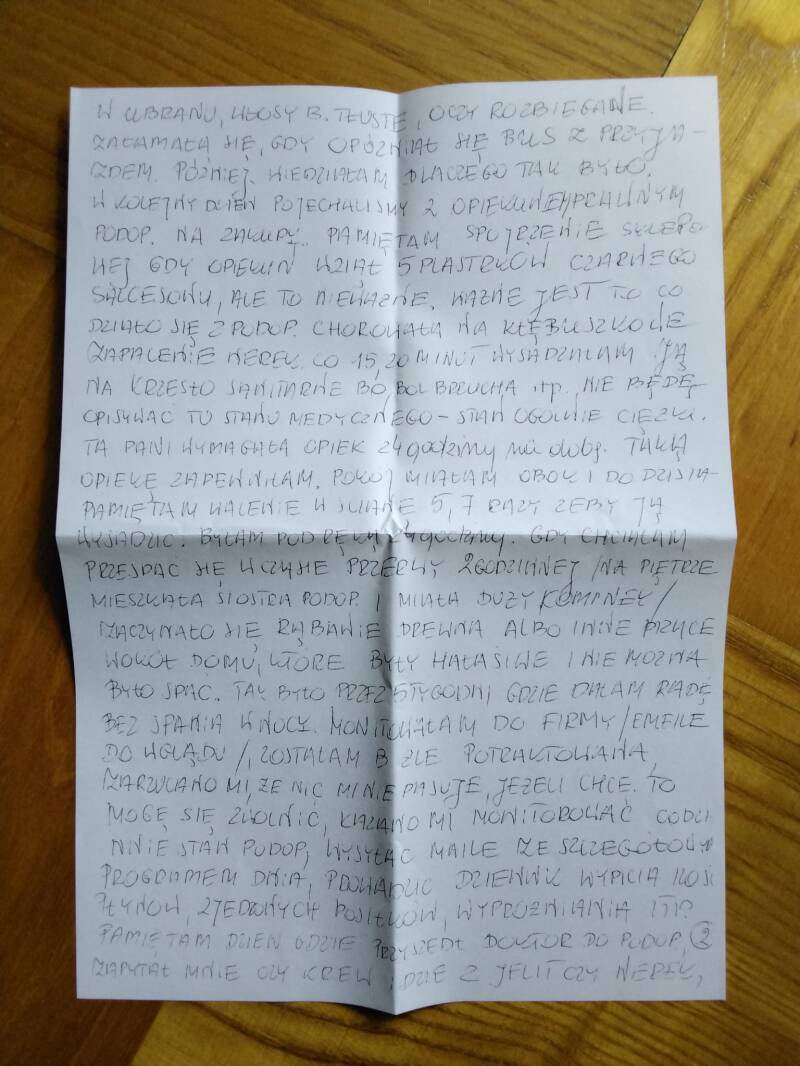 W UBRANU, WŁOSY B. TŁUSTE, OCZY ROZBIEGANE.
ZAŁAMAŁA SIĘ, GDY OPÓŹNIAŁ SIĘ BUS Z PRZYJA-
ZDEM. PÓŹNIEJ WIEDZIAŁAM DLACZEGO TAK BYŁO.
W KOLEJNY DZIEŃ POJECHALIŚMY Z OPIEKUNEM PRAWNYM
PODOP. NA ZAKUPY. PAMIĘTAM SPOJRZENIE SKLEPO-
WEJ GDY OPIEKUN WZIĄŁ 5 PLASTRKÓW CZARNEGO
SALCESONU, ALE TO NIEWAŻNE. WAŻNE JEST TO CO
DZIAŁO SIĘ Z PODOP. CHOROWAŁA NA KŁĘBUSZKOWE
ZAPALENIE NEREK. CO 15, 20 MINUT WYSADZAŁAM JĄ
NA KRZESŁO SANITARNE BO BÓL BRZUCHA itp. NIE BĘDĘ
OPISYWAĆ TU STANU MEDYCZNEGO - STAN OGÓLNIE CIĘŻKI.
TA PANI WYMAGAŁA OPIEK 24 godziny na dobę. TAKĄ
OPIEKĘ ZAPEWNIŁAM. POKÓJ MIAŁAM OBOK I DO DZISIA
PAMIĘTAM WALENIE W ŚCIANĘ 5, 7 RAZY ŻEBY JĄ
WYSADZIĆ. BYŁAM POD RĘKĄ 24 godziny. GDY CHCIAŁAM
PRZESPAĆ SIĘ W CZASIE PRZERWY 2 GODZINNEJ /NA PIĘTRZE
MIESZKAŁA SIOSTRA PODOP. I MIAŁA DUŻY KOMINEK/
ZACZYNAŁO SIĘ RĄBANIE DREWNA ALBO INNE PRACE
WOKÓŁ DOMU, KTÓRE BYŁY HAŁAŚIWE I NIE MOŻNA
BYŁO SPAĆ. TAK BYŁO PRZEZ 5 TYGODNI GDZIE DAŁAM RADĘ
BEZ SPANIA W NOCY. MONITOWAŁAM DO FIRMY /EMEILE
DO WGLĄDU/, ZOSTAŁAM B. ŹLE POTRAKTOWANA,
ZARZUCANO MI, ŻE NIC MI NIE PASUJE, JEŻELI CHCE. TO
MOGĘ SIĘ ZWOLNIĆ, KAZANO MI MONITOROWAĆ CODZI
NNIE STAN PODOP, WYSYŁAĆ MAILE ZE SZCZEGÓŁOWYM
PROGRAMEM DNIA, PROWADZIĆ DZIENNIK WYPICIA ILOŚC
PŁYNÓW, ZJEDZONYCH POSIŁKÓW, WYPRÓŻNIANIA ITP
PAMIĘTAM DZIEŃ GDZIE PRZYSZEDŁ DOKTOR DO PODOP, 2
ZAPYTAŁ MNIE CZY KREW IDZIE Z JELIT CZY NEREK,